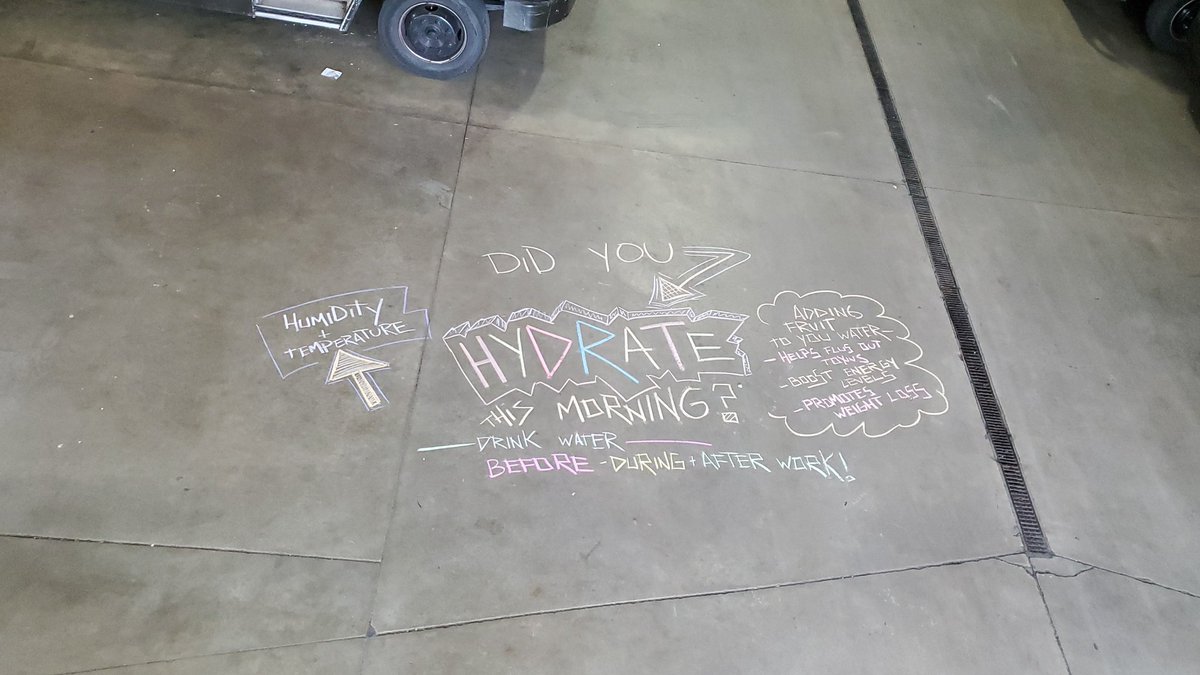 DiD YOU
HUMIDity
+
TEMPERATURE
HYDRATE
THIS MORNING?
DRINK WATER
BEFORE - DURING + AFTER WORK!
ADDING
FRUIT
TO YOU WATER-
- HELPS FLUS OUT
TOXINS
- BOOST ENERGY
LEVELS
- PROMOTES
WEIGHT LOSS